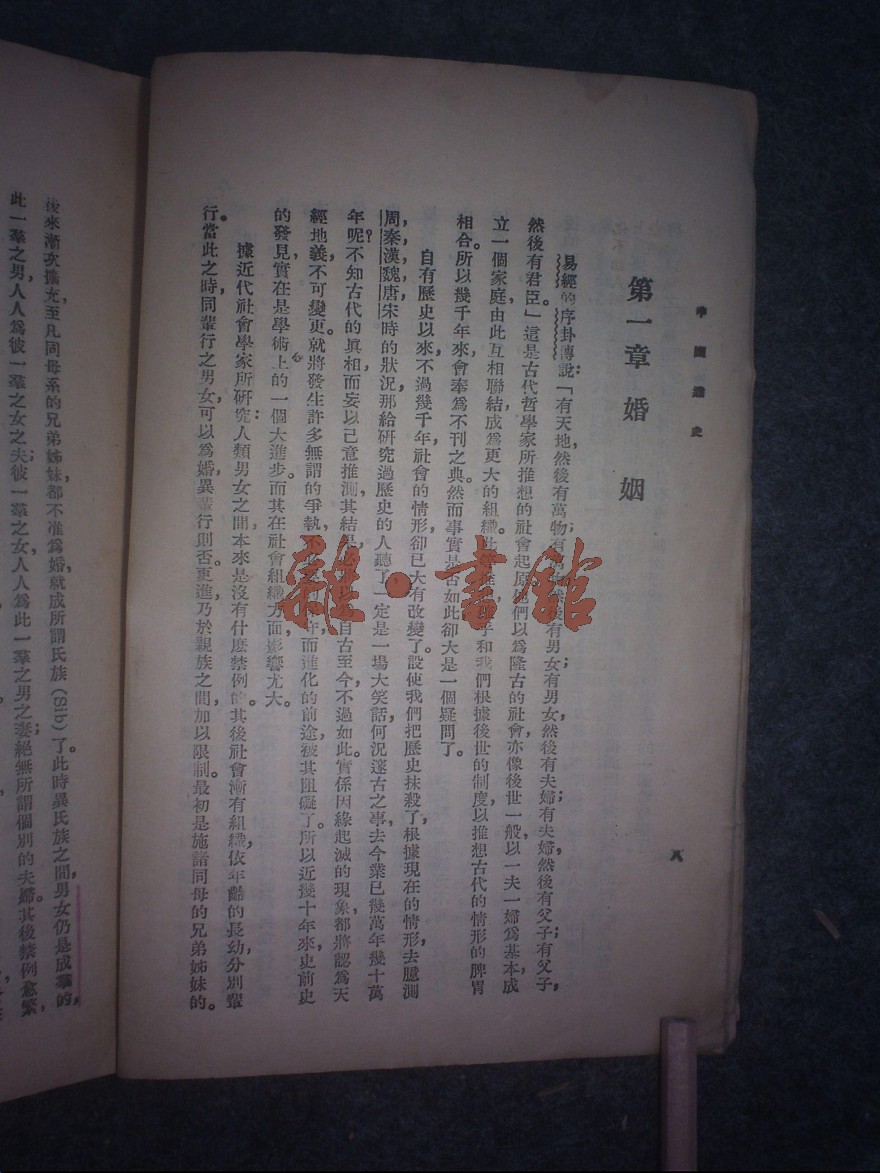 中國通史
八
第一章 婚姻
易經的序卦傳說：「有天地，然後有萬物；有然後有男女；有男女，然後有夫婦；有夫婦，然後有父子；有父子，
然後有君臣。」這是古代哲學家所推想的社會起原他們以為隆古的社會，亦像後世一般，以一夫一婦為基本，成
立一個家庭，由此互相聯結，成為更大的組織。和我們根據後世的制度，以推想古代的情形的脾胃
相合。所以幾千年來，會奉為不刊之典。然而事實是否如此，卻大是一個疑問了。
自有歷史以來，不過幾千年，社會的情形，卻已大有改變了。設使我們把歷史抹殺了，根據現在的情形，去臆測
周、秦、漢、魏、唐、宋時的狀況，那給研究過歷史的人聽了，一定是一場大笑話，何況邃古之事，去今業已幾萬年幾十萬
年呢？不知古代的真相，而妄以己意推測，其結果，自古至今，不過如此。實係因緣起滅的現象，都將認為天
經地義，不可變更。就將發生許多無謂的爭執，不年，而進化的前途被其阻礙了。所以近幾十年來，史前史
的發見，實在是學術上的一個大進步。而其在社會組織方面，影響尤大。
據近代社會學家所研究：人類男女之間，本來是沒有什麼禁例的。其後社會漸有組織，依年齡的長幼，分別輩
行。當此之時，同輩行之男女，可以為婚，異輩行則否。更進，乃於親族之間，加以限制。最初是施諸同母的兄弟姊妹的。
後來漸次擴充至凡同母系的兄弟姊妹，都不准為婚，就成所謂氏族(Sib)了。此時異氏族之間，男女仍是成羣的，
此一羣之男，人人為彼一羣之女之夫；彼一羣之女，人人為此一羣之男之妻；絕無所謂個別的夫婦。其後禁例愈繁，
雜·書館